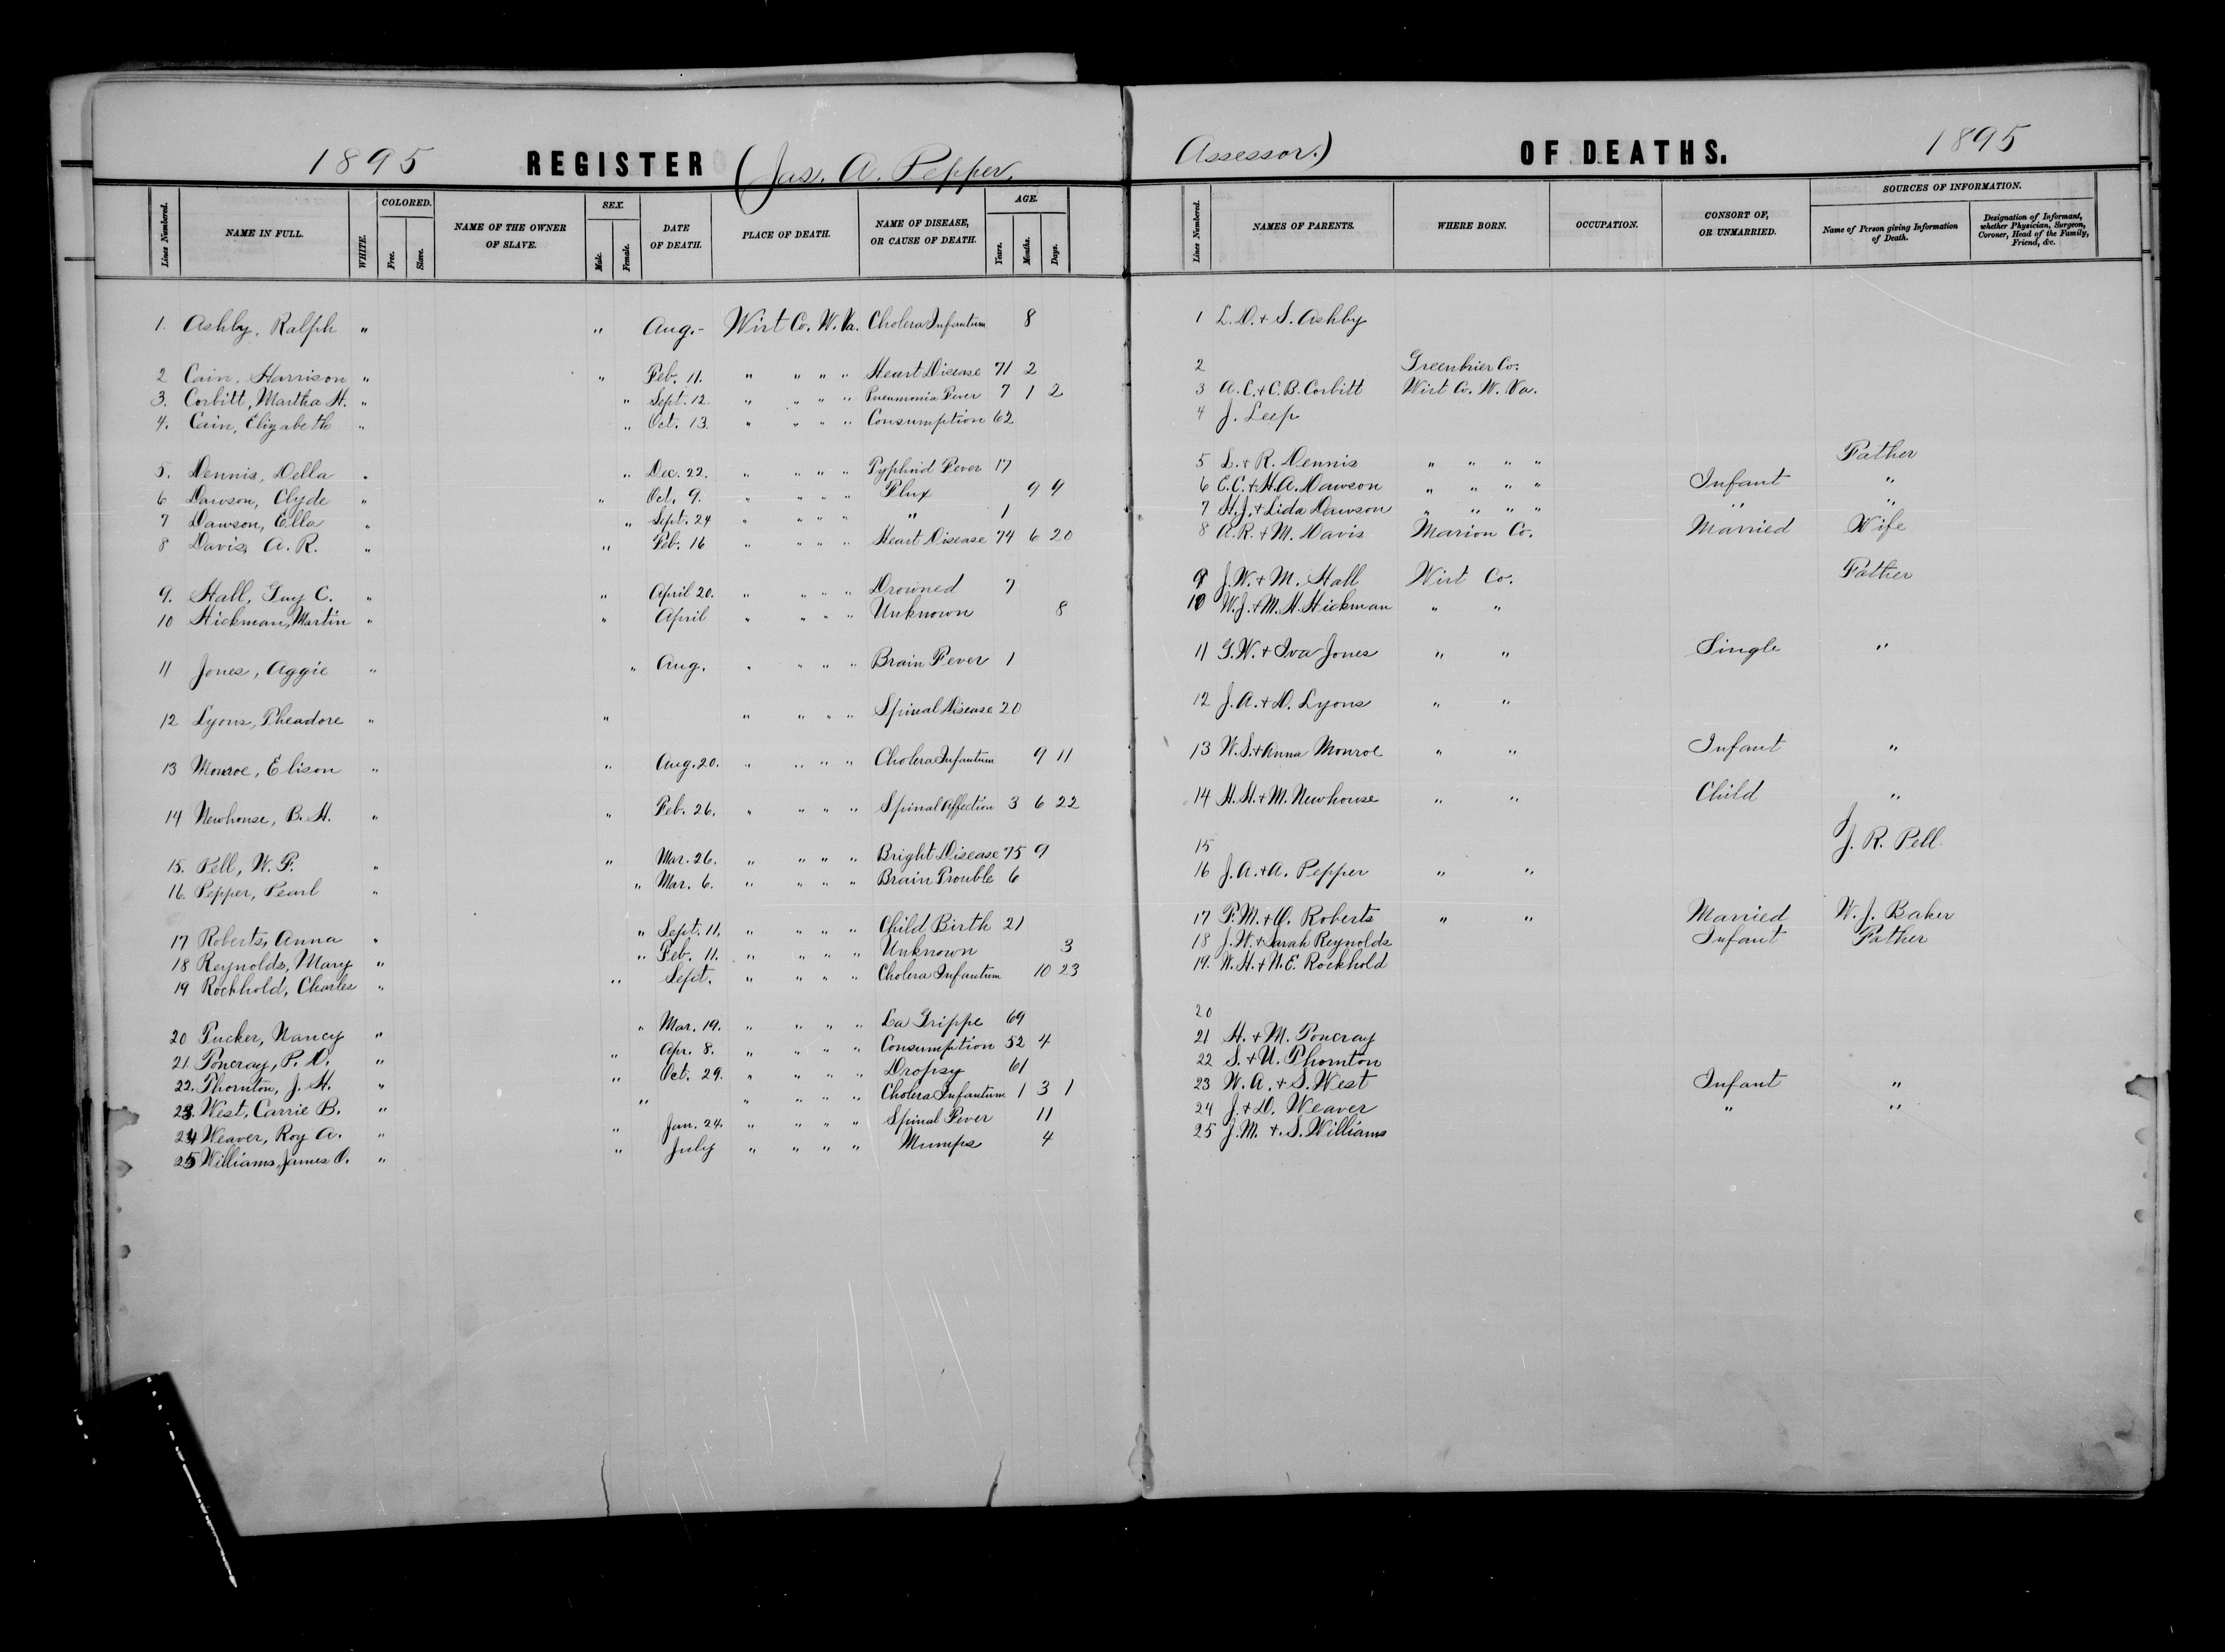 1895 REGISTER (Jas. A. Pepper,
Lines Numbered. NAME IN FULL. WHITE. COLORED. Free. Slave. NAME OF THE OWNER OF SLAVE. SEX. Male. Female. DATE OF DEATH. PLACE OF DEATH. NAME OF DISEASE, OR CAUSE OF DEATH. AGE. Years. Months. Days.
1. Ashby, Ralph " " Aug.- Wirt Co. W. Va. Cholera Infantum 8
2 Cain, Harrison " " Feb. 11. " " " " Heart Disease 71 2
3. Corbitt, Martha H. " " Sept. 12. " " " " Pneumonia Fever 7 1 2
4. Cain, Elizabeth " " Oct. 13. " " " " Consumption 62
5. Dennis, Della " " Dec. 22. " " " " Typhoid Fever 17
6 Dawson, Clyde " " Oct. 9. " " " " Flux 9 9
7 Dawson, Ella " " Sept. 24 " " " " " 1
8 Davis, A. R. " " Feb. 16 " " " " Heart Disease 74 6 20
9. Hall, Guy C. " " April 20. " " " " Drowned 7
10 Hickman, Martin " " April " " " " Unknown 8
11 Jones, Aggie " " Aug. " " " " Brain Fever 1
12 Lyons, Theadore " " " " " " Spinal Disease 20
13 Monroe, Elison " " Aug. 20. " " " " Cholera Infantum 9 11
14 Newhouse, B. H. " " Feb. 26. " " " " Spinal Affection 3 6 22
15. Pell, W. F. " " Mar. 26. " " " " Bright Disease 75 9
16. Pepper, Pearl " " Mar. 6. " " " " Brain Trouble 6
17 Roberts, Anna " " Sept. 11. " " " " Child Birth 21
18 Reynolds, Mary " " Feb. 11. " " " " Unknown 3
19 Rockhold, Charles " " Sept. " " " " Cholera Infantum 10 23
20 Tucker, Nancy " " Mar. 19. " " " " La Grippe 69
21 Toncray, P. D. " " Apr. 8. " " " " Consumption 52 4
22. Thornton, J. H. " " Oct. 29. " " " " Dropsy 61
23. West, Carrie B. " " " " " " Cholera Infantum 1 3 1
24 Weaver, Roy A. " " Jan. 24. " " " " Spinal Fever 11
25 Williams, James O. " " July " " " " Mumps 4
Assessor.) OF DEATHS. 1895
Lines Numbered. NAMES OF PARENTS. WHERE BORN. OCCUPATION. CONSORT OF, OR UNMARRIED. SOURCES OF INFORMATION. Name of Person giving Information of Death. Designation of Informant, whether Physician, Surgeon, Coroner, Head of the Family, Friend, &c.
1 L. D. + S. Ashby
2 Greenbrier Co.
3 A. C. + C. B. Corbitt Wirt Co. W. Va.
4 J. Leep
5 L. + R. Dennis " " " " Father
6 E. C. + H. A. Dawson " " " " Infant "
7 H. J. + Lida Dawson " " " " " "
8 A. R. + M. Davis Marion Co. Married Wife
9 J. W. + M. Hall Wirt Co. Father
10 W. J. + M. H. Hickman " "
11 G. W. + Iva Jones " " Single "
12 J. A. + D. Lyons " "
13 W. S. + Anna Monroe " " Infant "
14 H. H. + M. Newhouse " " Child "
15 J. R. Pell.
16 J. A. + A. Pepper " "
17 F. M. + O. Roberts " " Married W. J. Baker
18 J. W. + Sarah Reynolds Infant Father
19. W. H. + N. E. Rockhold
20
21 H. + M. Toncray
22 S. + U. Thornton
23 W. A. + S. West Infant "
24 J. + D. Weaver " "
25 J. M. + S. Williams